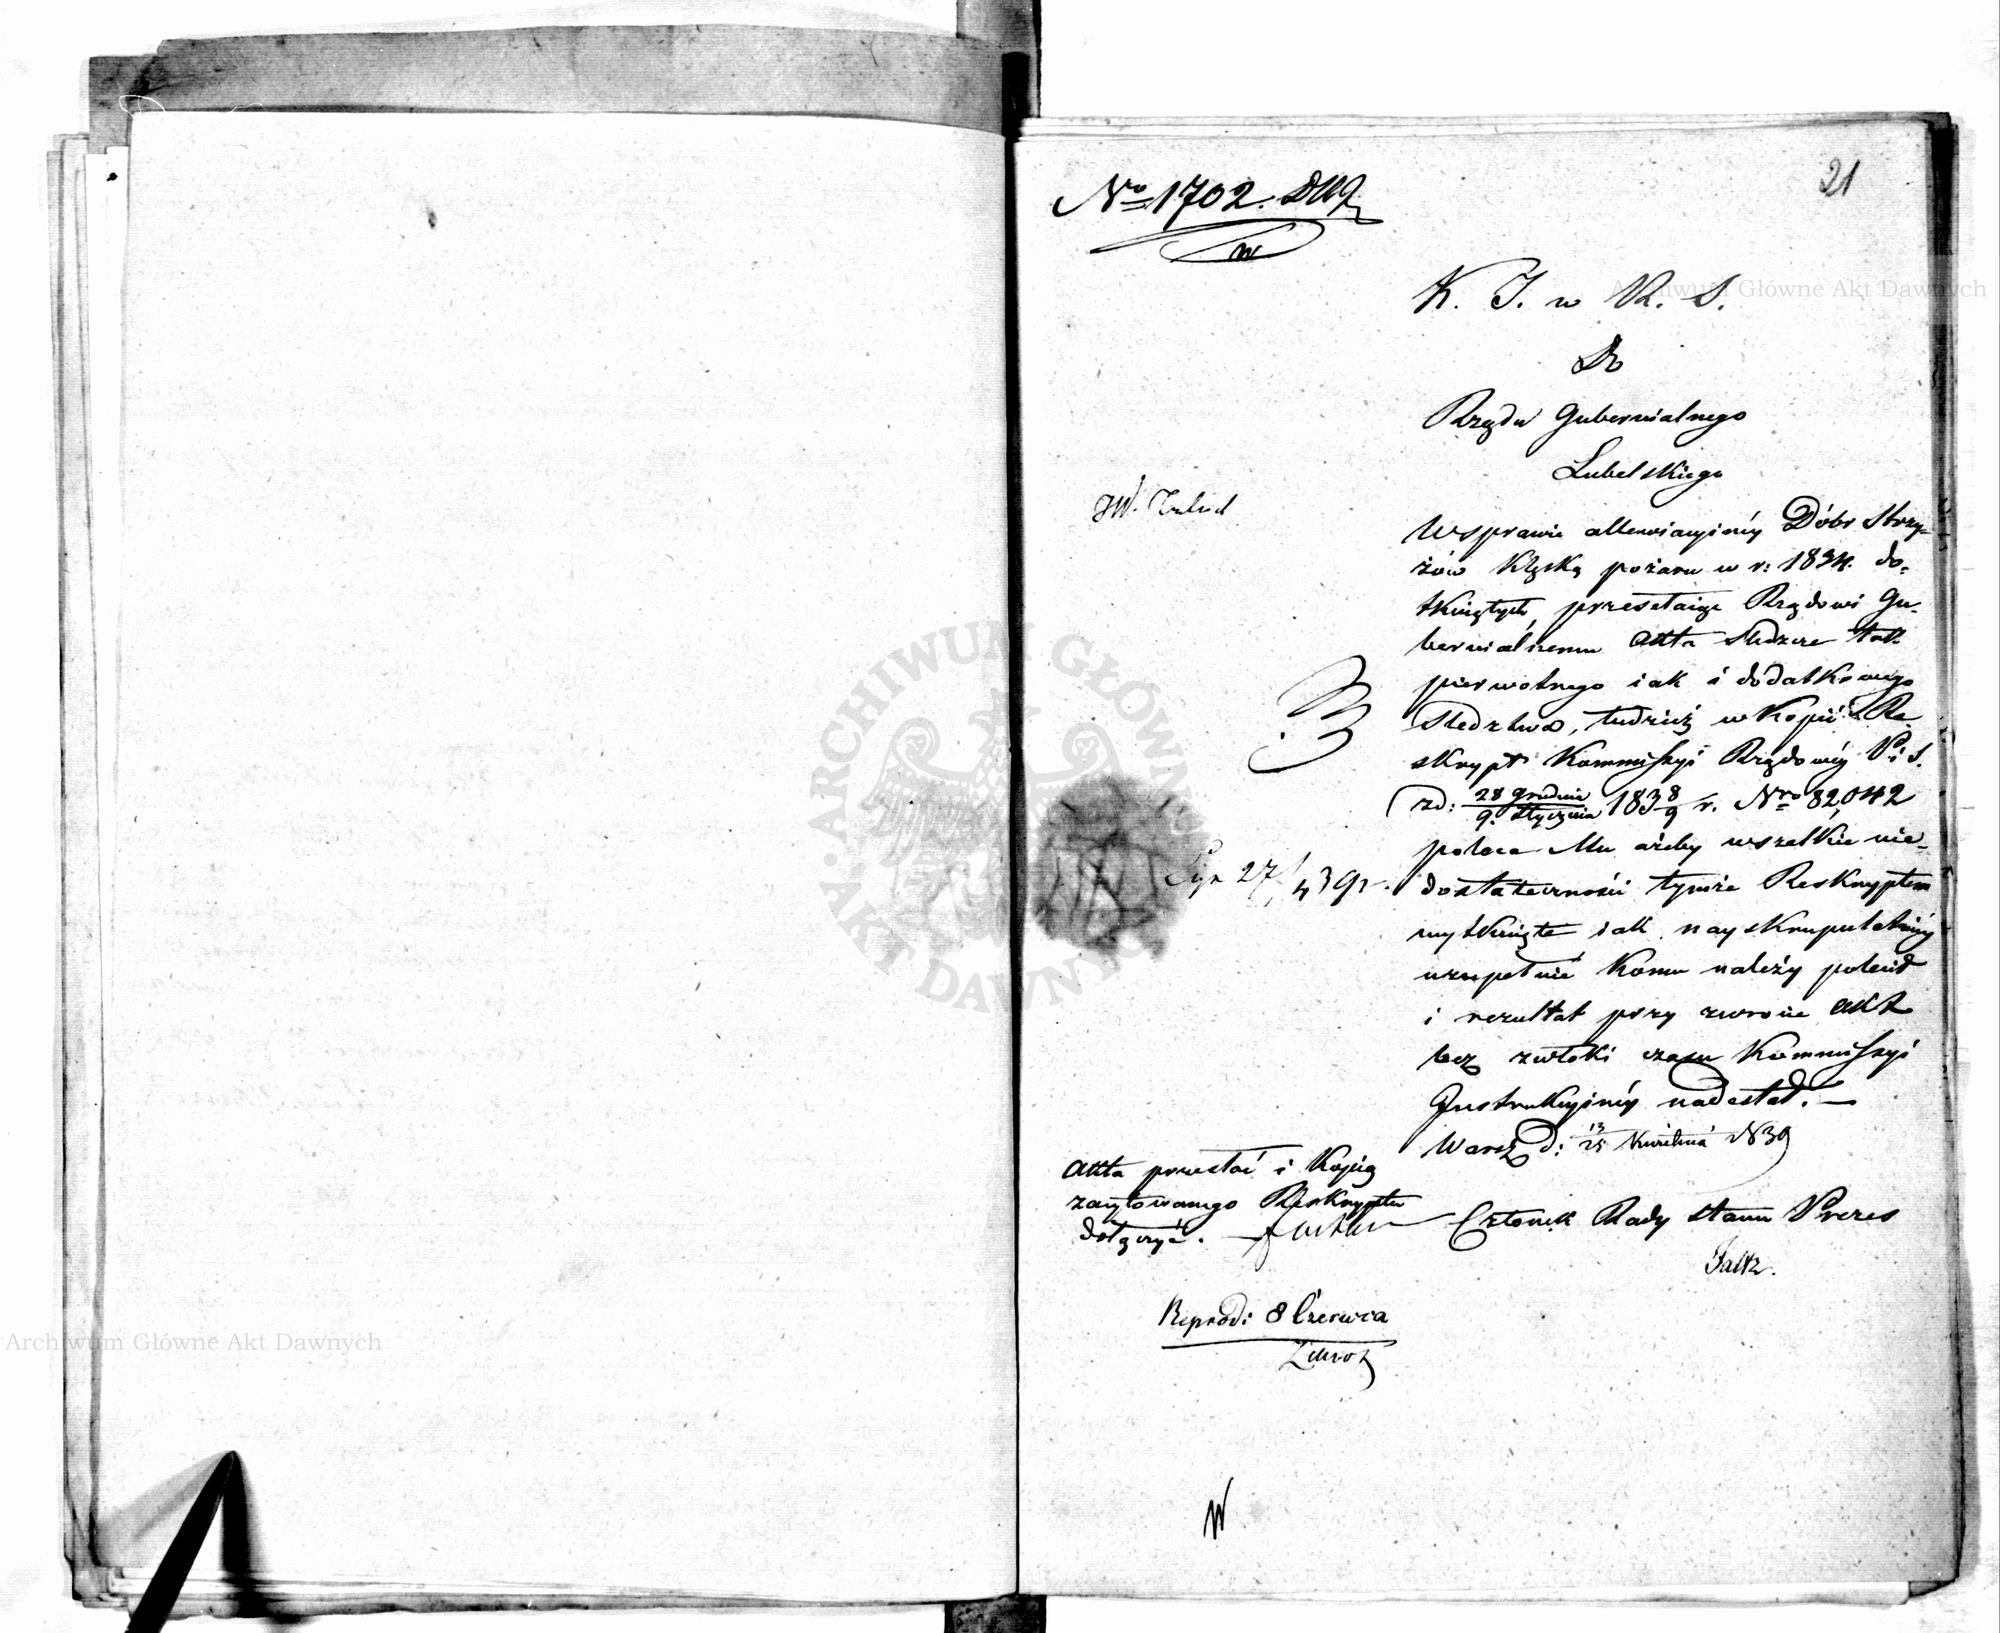 21
No 1702.
K. J. w K. S.
Do
Rządu Gubernialnego
Lubelskiego
W sprawie allewiacyjnéy Dóbr Strzy-
żów klęską pożaru w r: 1834. do-
tkniętych, przesełaiąc Rządowi Gu-
bernialnemu akta śledcze tak
pierwotnego iak i dodatkowego
śledztwa, tudzież w kopii Re-
skrypt Kommissyi Rządowéy P. i S.
z d: 28 Grudnia / 9. Stycznia 1838/9 r. Nro 82,042
poleca Mu ażeby wszelkie nie-
dostateczności tymże Reskryptem
wytknięte iak nayskrupulatniéy
uzupełnić komu należy polecił
i rezultat przy zwrocie akt
bez zwłoki czasu Kommissyi
Instrukcyjnéy nadesłał. —
Warsz d: 13/25 Kwietnia 1839
Członek Rady Stanu Prezes
Faltz.
JW.
27/4 39 r.
Akta przesłać i kopią
zacytowanego Reskryptu
dołączyć.
Reprod: 8 Czerwca
W
ARCHIWUM GŁÓWNE AKT DAWNYCH
Archiwum Główne Akt Dawnych
Archiwum Główne Akt Dawnych